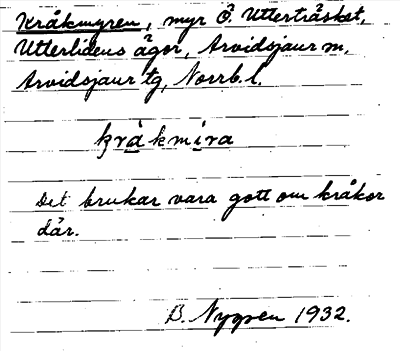 Kråkmyren, myr Ö. Utterträsket,
Utterlidens ägor, Arvidsjaur m.
Arvidsjaur tg, Norrb. l.
kråkmira
Det brukar vara gott om kråkor
där.
B. Nygren 1932.